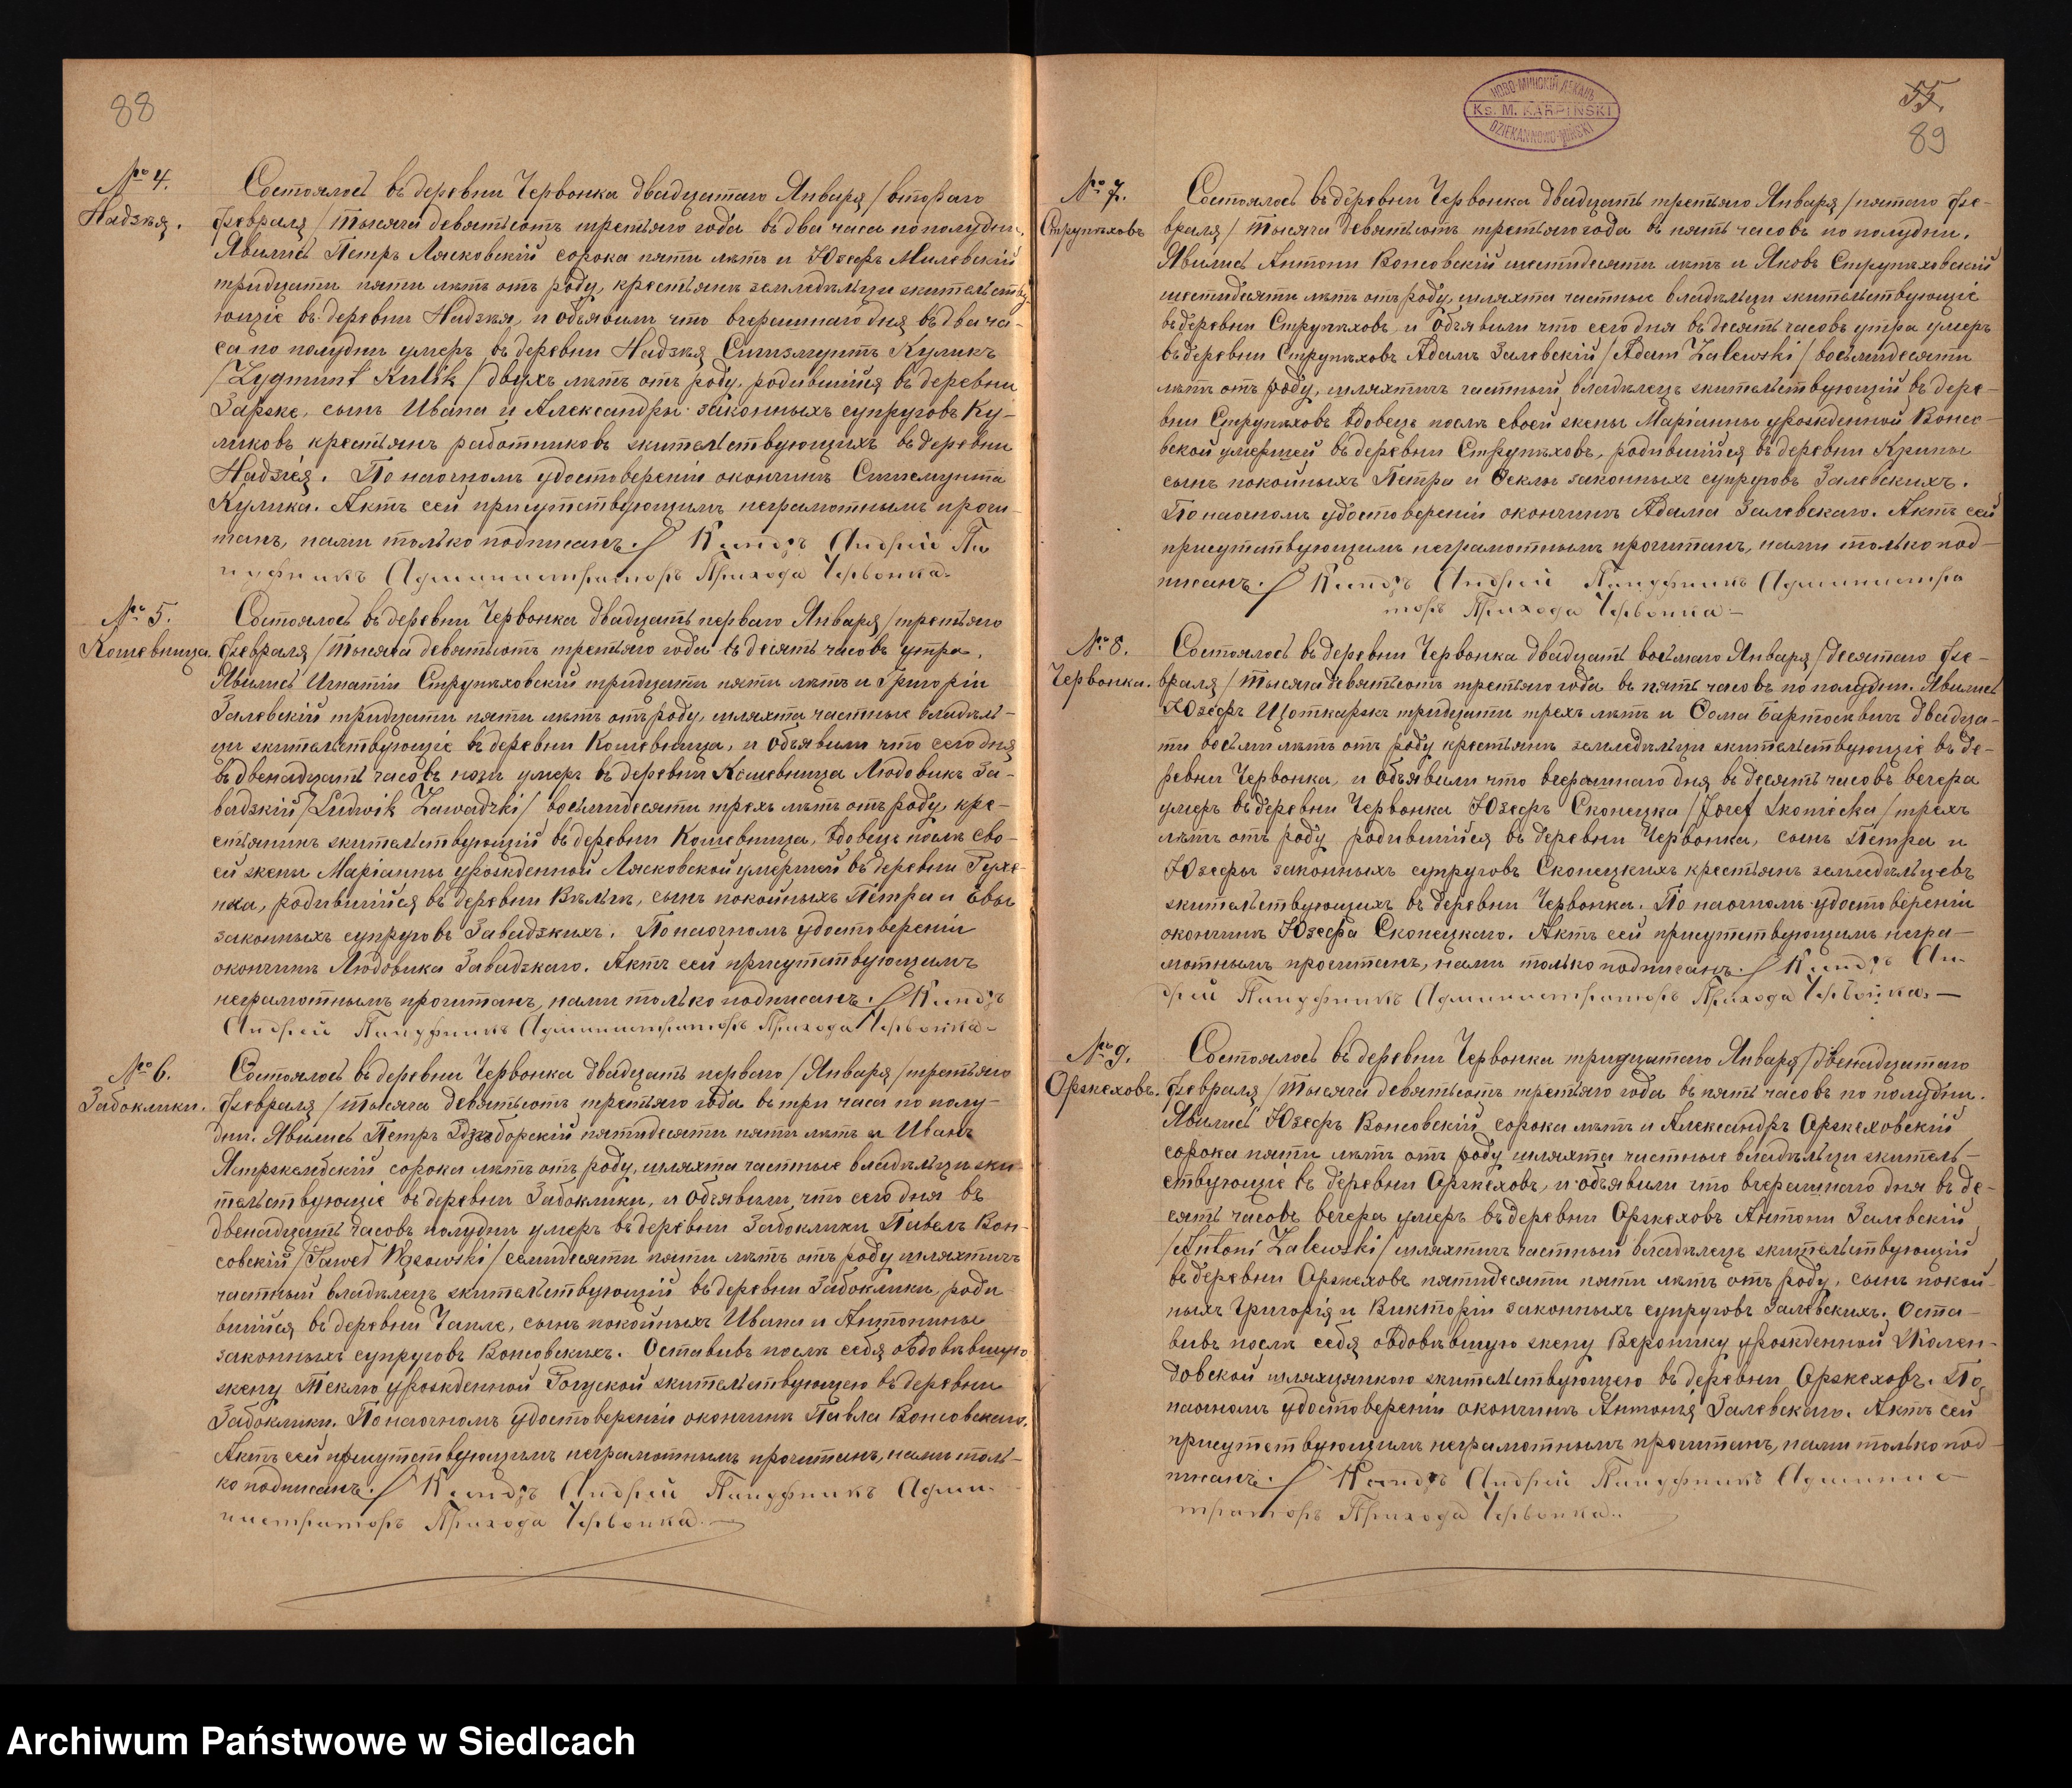 88
№ 4.
Надзѣя.
Состоялось въ деревни Червонка двадцатаго Января /втораго
Февраля/ тысяча девятьсотъ третьяго года въ два часа по полудни.
Явились Петръ Лясковскій сорока пяти лѣтъ и Юзефъ Милевскій
тридцати пяти лѣтъ отъ роду, крестьяне земледѣльцы жительству-
ющіе въ деревни Надзѣя, и объявили что вчерашнаго дня въ два ча-
са по полудни умеръ въ деревни Надзѣя Сигизмунтъ Куликъ
/Zygmunt Kulik/ двухъ лѣтъ отъ роду, родившійся въ деревни
сынъ Ивана и Александры законныхъ супруговъ Ку-
ликовъ крестьянъ работниковъ жительствующихъ въ деревни
Надзѣя. По наочномъ удостовереніи окончинѣ Сигизмунта
Кулика. Актъ сей присутствующимъ неграмотнымъ прочи-
танъ, нами только подписанъ. Ксендзъ Андрей
Администраторъ Прихода Червонка.
№ 5.
Кошевница.
Состоялось въ деревни Червонка двадцать перваго Января /третьяго
Февраля/ тысяча девятьсотъ третьяго года въ десять часовъ утра.
Явились Игнатій Струпѣховскій тридцати пяти лѣтъ и Григорій
Залевскій тридцати пяти лѣтъ отъ роду, шляхта частные владѣль-
цы жительствующіе въ деревни Кошевница, и объявили что сего дня
въ двенадцать часовъ ночи умеръ въ деревни Кошевница Людовикъ За-
вадзкій /Ludwik Zawadzki/ восьмидесяти трехъ лѣтъ отъ роду, кре-
стянинъ жительствующій въ деревни Кошевница, вдовецъ послѣ сво-
ей жены Маріанны урожденной Лясковской умершей въ деревни
родившійся въ деревни сынъ покойныхъ Петра и Евы
законныхъ супруговъ Завадзкихъ. По наочномъ удостовереніи
окончинѣ Людовика Завадзкаго. Актъ сей присутствующимъ
неграмотнымъ прочитанъ, нами только подписанъ. Ксендзъ
Андрей Администраторъ Прихода Червонка
№ 6.
Забоклики.
Состоялось въ деревни Червонка двадцать перваго /Января /третьяго
Февраля/ тысяча девятьсотъ третьяго года въ три часа по полу-
дни. Явились Петръ пятидесяти пяти лѣтъ и Иванъ
сорока лѣтъ отъ роду, шляхта частные владѣльцы жи-
тельствующіе въ деревни Забоклики, и объявили, что сего дня въ
двенадцать часовъ полудни умеръ въ деревни Забоклики Павелъ Вон-
совскій /Paweł Wąsowski/ семидесяти пяти лѣтъ отъ роду шляхтичъ
частный владѣлецъ жительствующій въ деревни Забоклики, роди-
вшійся въ деревни Чапле, сынъ покойныхъ Ивана и Антонины
законныхъ супруговъ Вонсовскихъ. Оставивъ послѣ себя овдовѣвшую
жену Теклю урожденной жительствующею въ деревни
Забоклики. По наочномъ удостовереніи окончинѣ Павла Вонсовскаго.
Актъ сей присутствующимъ неграмотнымъ прочитанъ, нами толь-
ко подписанъ. Ксендзъ Андрей Адми-
нистраторъ Прихода Червонка.
НОВО-МИНСКІЙ ДЕКАНЪ
Ks. M. KARPIŃSKI
DZIEKAN NOWO-MIŃSKI
55.
89
№ 7.
Струпѣховъ
Состоялось въ деревни Червонка двадцать третьяго Января /пятаго Фе-
враля/ тысяча девятьсотъ третьяго года въ пять часовъ по полудни.
Явились Антони Вонсовскій шестидесяти лѣтъ и Яковъ Струпѣховскій
шестидесяти лѣтъ отъ роду, шляхта частные владѣльцы жительствующіе
въ деревни Струпѣховъ, и объявили что сего дня въ десять часовъ утра умеръ
въ деревни Струпѣховъ Адамъ Залевскій /Adam Zalewski/ восьмидесяти
лѣтъ отъ роду, шляхтичъ частный владѣлецъ жительствующій въ дере-
вни Струпѣховъ вдовецъ послѣ своей жены Маріанны урожденной Вонсо-
вской умершей въ деревни Струпѣховъ, родившійся въ деревни Крипы
сынъ покойныхъ Петра и Феклы законныхъ супруговъ Залевскихъ.
По наочномъ удостовереніи окончинѣ Адама Залевскаго. Актъ сей
присутствующимъ неграмотнымъ прочитанъ, нами только под-
писанъ. Ксендзъ Андрей Администра
торъ Прихода Червонка
№ 8.
Червонка.
Состоялось въ деревни Червонка двадцать восьмаго Января /десятаго Фе-
враля/ тысяча девятьсотъ третьяго года въ пять часовъ по полудни. Явились
Юзефъ тридцати трехъ лѣтъ и Ѳома двадца-
ти восьми лѣтъ отъ роду крестьяне земледѣльцы жительствующіе въ де-
ревни Червонка, и объявили что вчерашнаго дня въ десять часовъ вечера
умеръ въ деревни Червонка Юзефъ Сконецка /Józef Skoniecka/ трехъ
лѣтъ отъ роду родившійся въ деревни Червонка, сынъ Петра и
Юзефы законныхъ супруговъ Сконецкихъ крестьянъ земледѣльцевъ
жительствующихъ въ деревни Червонка. По наочномъ удостовереніи
окончинѣ Юзефа Сконецкаго. Актъ сей присутствующимъ негра-
мотнымъ прочитанъ, нами только подписанъ. Ксендзъ Ан-
дрей Администраторъ Прихода Червонка.
№ 9.
Оржеховъ.
Состоялось въ деревни Червонка тридцатаго Января /двенадцатаго
Февраля/ тысяча девятьсотъ третьяго года въ пять часовъ по полудни.
Явились Юзефъ Вонсовскій сорока лѣтъ и Александръ Оржеховскій
сорока пяти лѣтъ отъ роду шляхта частные владѣльцы житель-
ствующіе въ деревни Оржеховъ, и объявили что вчерашнаго дня въ де-
сять часовъ вечера умеръ въ деревни Оржеховъ Антони Залевскій
/Antoni Zalewski/ шляхтичъ частный владѣлецъ жительствующій
въ деревни Оржеховъ пятидесяти пяти лѣтъ отъ роду, сынъ покой-
ныхъ Григорія и Викторіи законныхъ супруговъ Залевскихъ. Оста-
вивъ послѣ себя овдовѣвшую жену Веронику урожденной
шляхцянкою жительствующею въ деревни Оржеховъ. По
наочномъ удостовереніи окончинѣ Антонія Залевскаго. Актъ сей
присутствующимъ неграмотнымъ прочитанъ, нами только под-
писанъ. Ксендзъ Андрей Админис-
траторъ Прихода Червонка.
Archiwum Państwowe w Siedlcach